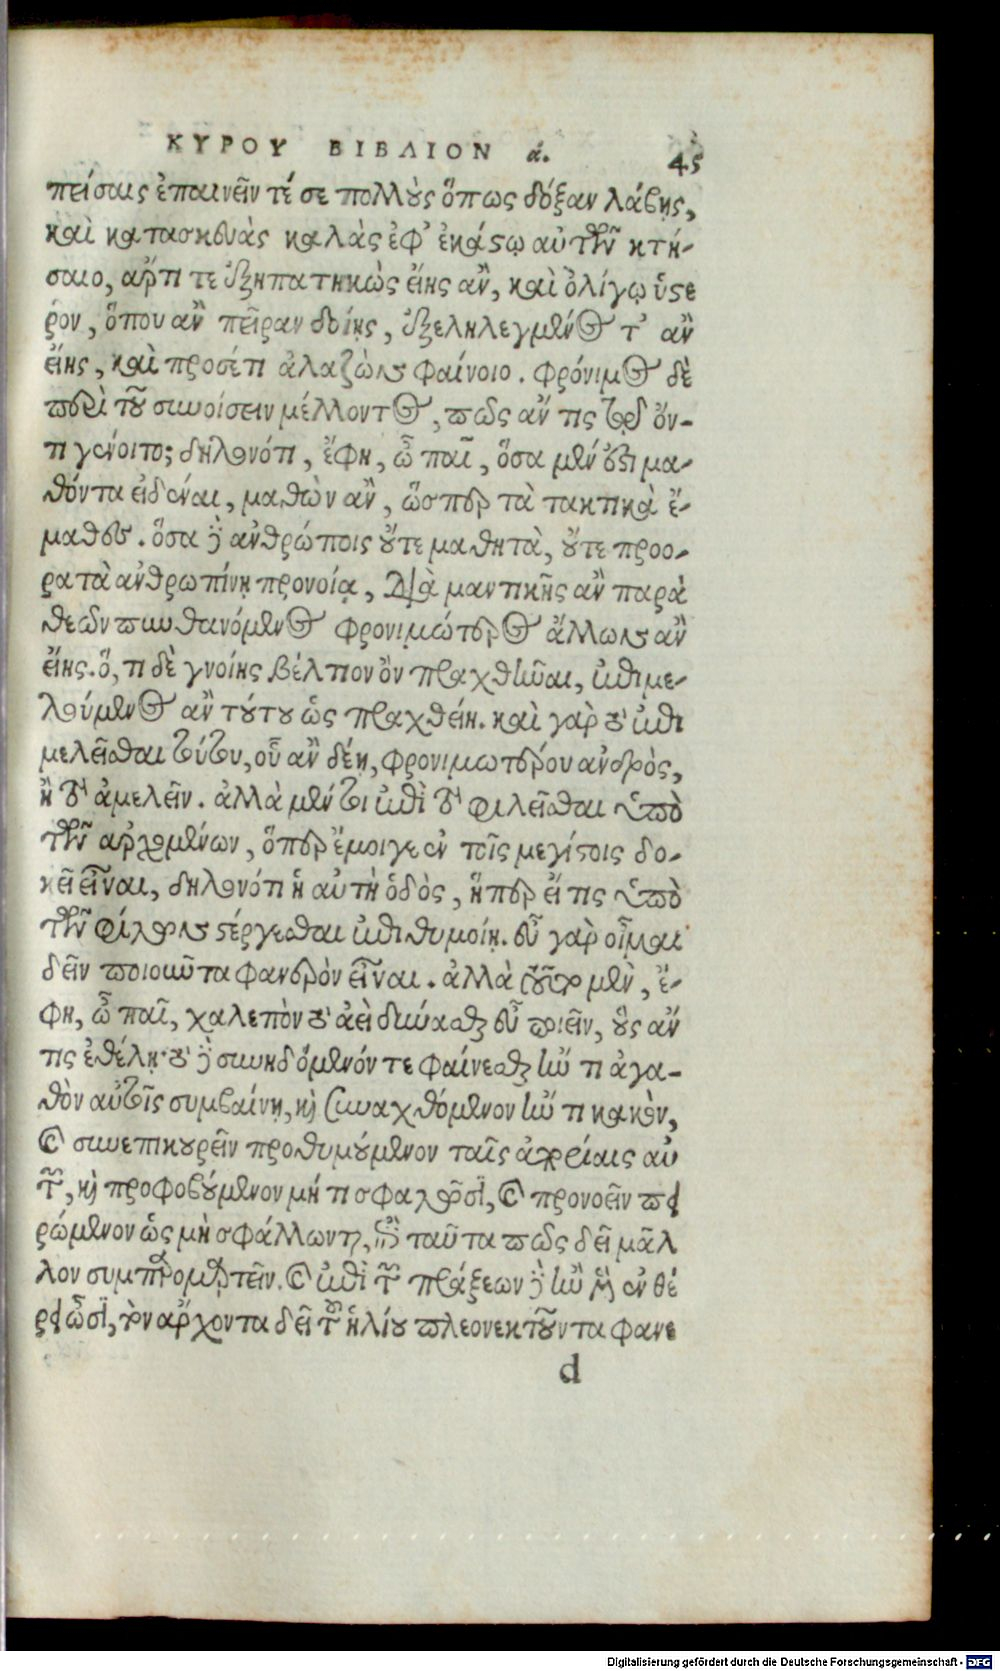 ΚΥΡΟΥ ΒΙΒΛΙΟΝ ά. 45
πείσαις ἐπαινεῖν τέ σε πολλοὺς ὅπως δόξαν λάβῃς,
καὶ κατασκευὰς καλὰς ἐφ' ἑκάστῳ αὐτῶν κτή-
σαιο, ἄρτι τε ἐξηπατηκὼς εἴης ἂν, καὶ ὀλίγῳ ὕστε
ρον, ὅπου ἂν πεῖραν δοίης, ἐξεληλεγμένος τ' ἂν
εἴης, καὶ προσέτι ἀλαζὼν φαίνοιο. φρόνιμος δὲ
περὶ τοῦ συνοίσειν μέλλοντος, πῶς ἄν τις τῷ ὄν-
τι γένοιτο; δηλονότι, ἔφη, ὦ παῖ, ὅσα μὲν ἔστι μα-
θόντα εἰδέναι, μαθὼν ἂν, ὥσπερ τὰ τακτικὰ ἔ-
μαθες. ὅσα δὲ ἀνθρώποις οὔτε μαθητὰ, οὔτε προο-
ρατὰ ἀνθρωπίνῃ προνοίᾳ, διὰ μαντικῆς ἂν παρὰ
θεῶν πυνθανόμενος φρονιμώτερος ἄλλων ἂν
εἴης. ὅ, τι δὲ γνοίης βέλτιον ὂν πραχθῆναι, ἐπιμε-
λούμενος ἂν τούτου ὡς πραχθείη. καὶ γὰρ τὸ ἐπι
μελεῖσθαι τούτου, οὗ ἂν δέῃ, φρονιμωτέρου ἀνδρὸς,
ἢ τὸ ἀμελεῖν. ἀλλὰ μέντοι ἐπὶ τὸ φιλεῖσθαι ὑπὸ
τῶν ἀρχομένων, ὅπερ ἔμοιγε ἐν τοῖς μεγίστοις δο-
κεῖ εἶναι, δηλονότι ἡ αὐτὴ ὁδὸς, ἥπερ εἴ τις ὑπὸ
τῶν φίλων στέργεσθαι ἐπιθυμοίη. εὖ γὰρ οἶμαι
δεῖν ποιοῦντα φανερὸν εἶναι. ἀλλὰ τοῦτο μὲν, ἔ-
φη, ὦ παῖ, χαλεπὸν τὸ ἀεὶ δύνασθαι εὖ ποιεῖν, οὓς ἄν
τις ἐθέλῃ· τὸ δὲ συνηδόμενόν τε φαίνεσθαι ἤν τι ἀγα-
θὸν αὐτοῖς συμβαίνῃ, καὶ συναχθόμενον ἤν τι κακὸν,
καὶ συνεπικουρεῖν προθυμούμενον ταῖς ἀπορίαις αὐ
τῶν, καὶ προφοβούμενον μή τι σφαλῶσι, καὶ προνοεῖν πει
ρώμενον ὡς μὴ σφάλλωνται, ἐπὶ ταῦτα πῶς δεῖ μᾶλ
λον συμπαρομαρτεῖν. καὶ ἐπὶ τῶν πράξεων δὲ ἢν μὲν ἐν θέ
ρει ὦσι, τὸν ἄρχοντα δεῖ τοῦ ἡλίου πλεονεκτοῦντα φανε
d
Digitalisierung gefördert durch die Deutsche Forschungsgemeinschaft - DFG